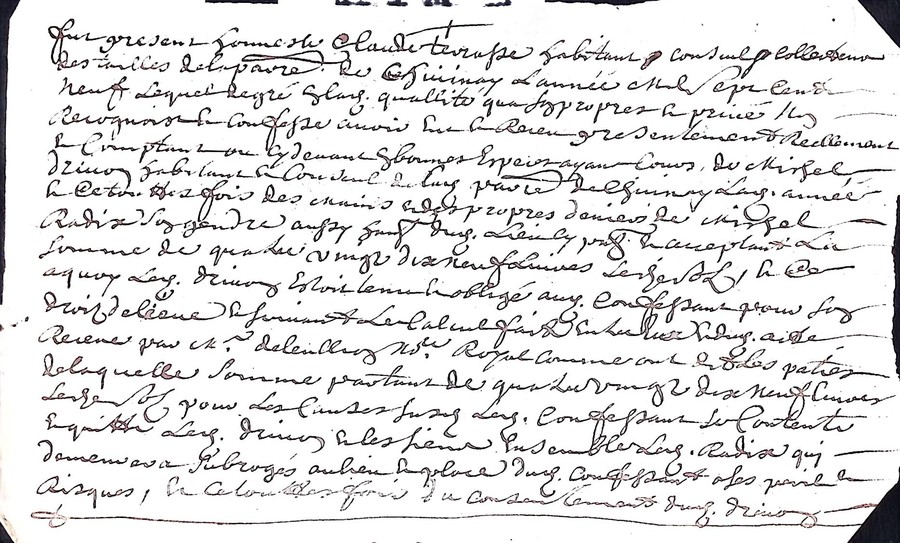 fut present honneste Claude Terrasse habitant & consul & collecteur
des tailles de la parre. de Chuinay L'année Mil sept cents
neuf Lequel de gré quallité que sy propres & privé
Recognoist & Confesse avoir Eu & Receu presentement & Reellement
& Comptant ou cy devant Especes ayant Cours, de Michel
drivon habitant & Consul de lad. parre de Chuinay Lad. année
& Ce touttesfois des mains & des propres deniers de Michel
Radix Son gendre aussy habt. dud. Lieu Cy pnt. & acceptant La
Somme de quatre vingt dix neuf Livres seize sols, & Ce
a quoy Led. drivon Estoit tenu & obligé aud. Confessant pour Son
droit de Ensuivant Le Calcul fait Entre Eux
Receue par Me. Nore. Royal Comme ont dit Les parties
de laquelle Somme partant de quatre vingt dix neuf Livres
seize sols pour Les Causes susd. Led. Confessant Se Contente
& quitte Led. drivon & les siens Ensemble Led. Radix qui
demeurera Subrogés au lieu & place dud. Confessant a ses perils &
Risques, & Ce touttesfois du Consentement dud. drivon